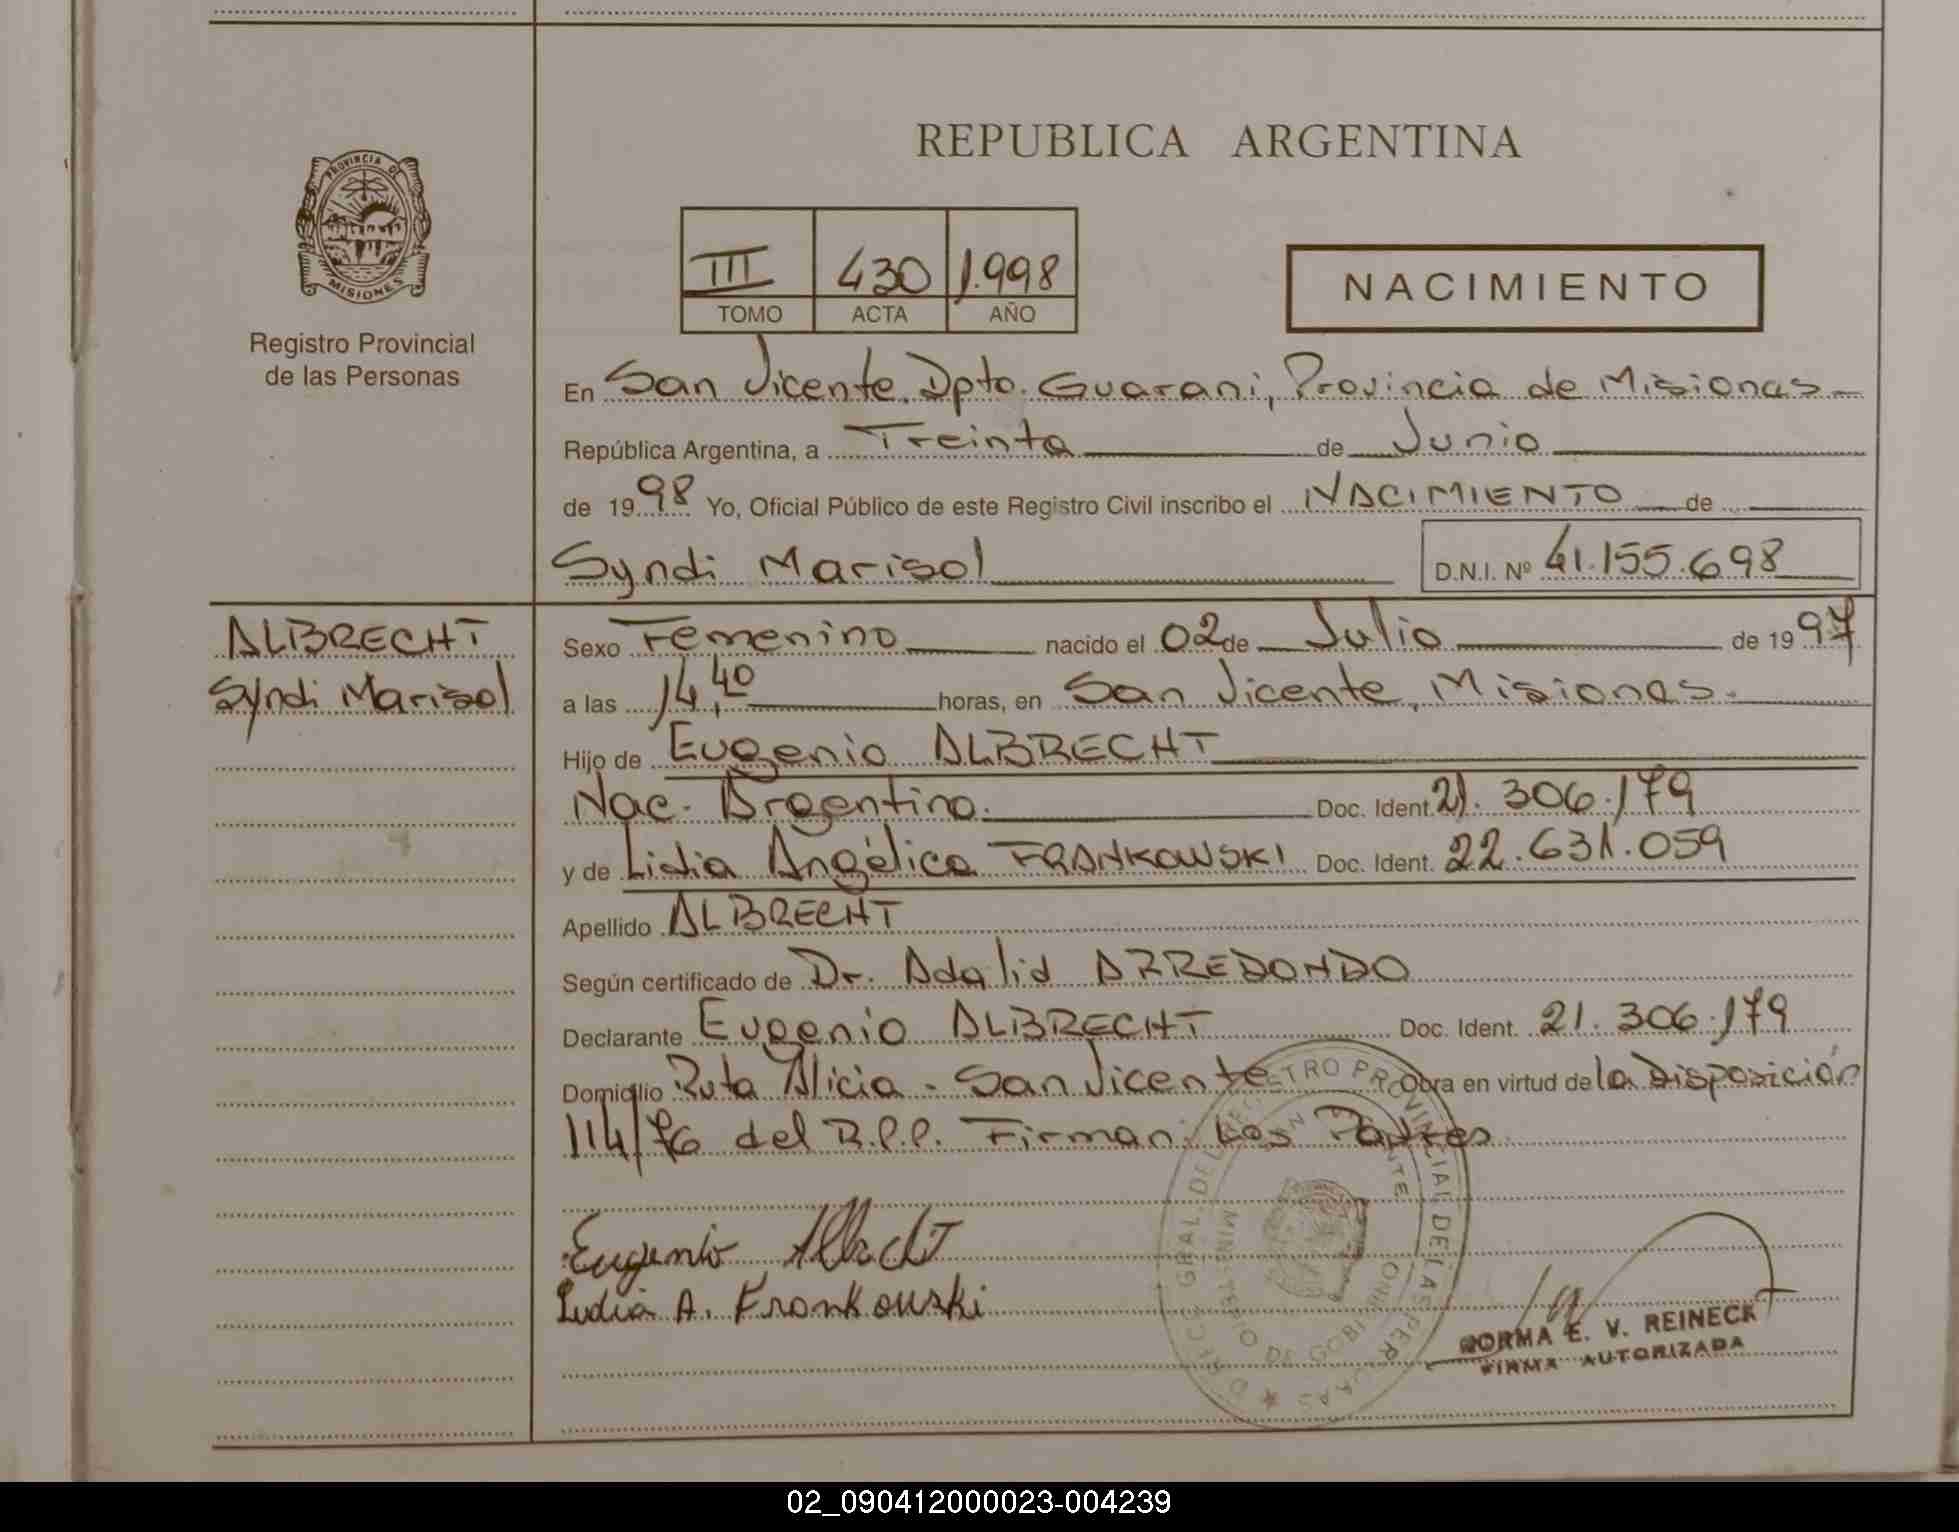 REPUBLICA ARGENTINA
PROVINCIA DE
MISIONES
Registro Provincial
de las Personas
III 430 1.998
TOMO ACTA AÑO
NACIMIENTO
En San Vicente. Dpto. Guarani, Provincia de Misiones
República Argentina, a Treinta de Junio
de 1998 Yo, Oficial Público de este Registro Civil inscribo el NACIMIENTO de
Syndi Marisol D.N.I. Nº 41.155.698
ALBRECHT
Syndi Marisol
Sexo Femenino nacido el 02 de Julio de 1997
a las 14,40 horas, en San Vicente, Misiones.
Hijo de Eugenio ALBRECHT
Nac. Argentino. Doc. Ident. 21.306.179
y de Lidia Angélica FRANKOWSKI Doc. Ident. 22.631.059
Apellido ALBRECHT
Según certificado de Dr. Adalid ARREDONDO
Declarante Eugenio ALBRECHT Doc. Ident. 21.306.179
Domicilio Ruta Alicia - San Vicente Obra en virtud de la Disposición
114/76 del R.P.P. Firman: Los Padres
Eugenio Albrecht
Lidia A. Frankowski
REGISTRO PROVINCIAL DE LAS PERSONAS
SAN VICENTE
DE GOBIERNO
NORMA E. V. REINECK
FIRMA AUTORIZADA
02_090412000023-004239